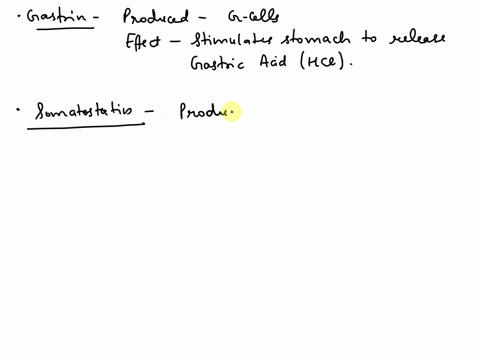 · Gastrin - Produced - G-Cells
Effect - Stimulates stomach to release
Gastric Acid (HCl).
· Somatostatin - Produ